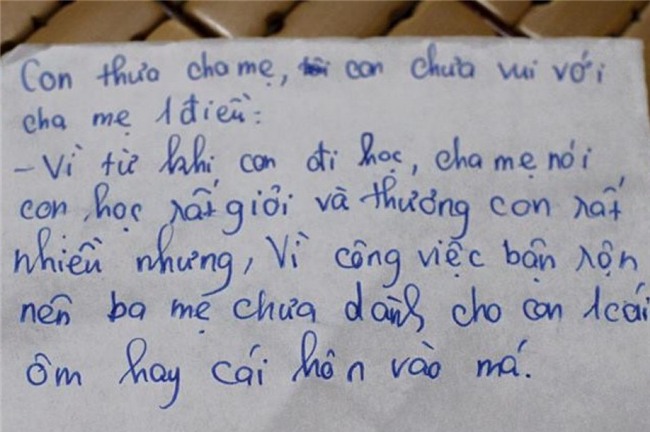 Con thưa cha mẹ, con chưa vui với
cha mẹ 1 điều:
- Vì từ khi con đi học, cha mẹ nói
con học rất giỏi và thương con rất
nhiều nhưng, Vì công việc bận rộn
nên ba mẹ chưa dành cho con 1 cái
ôm hay cái hôn vào má.